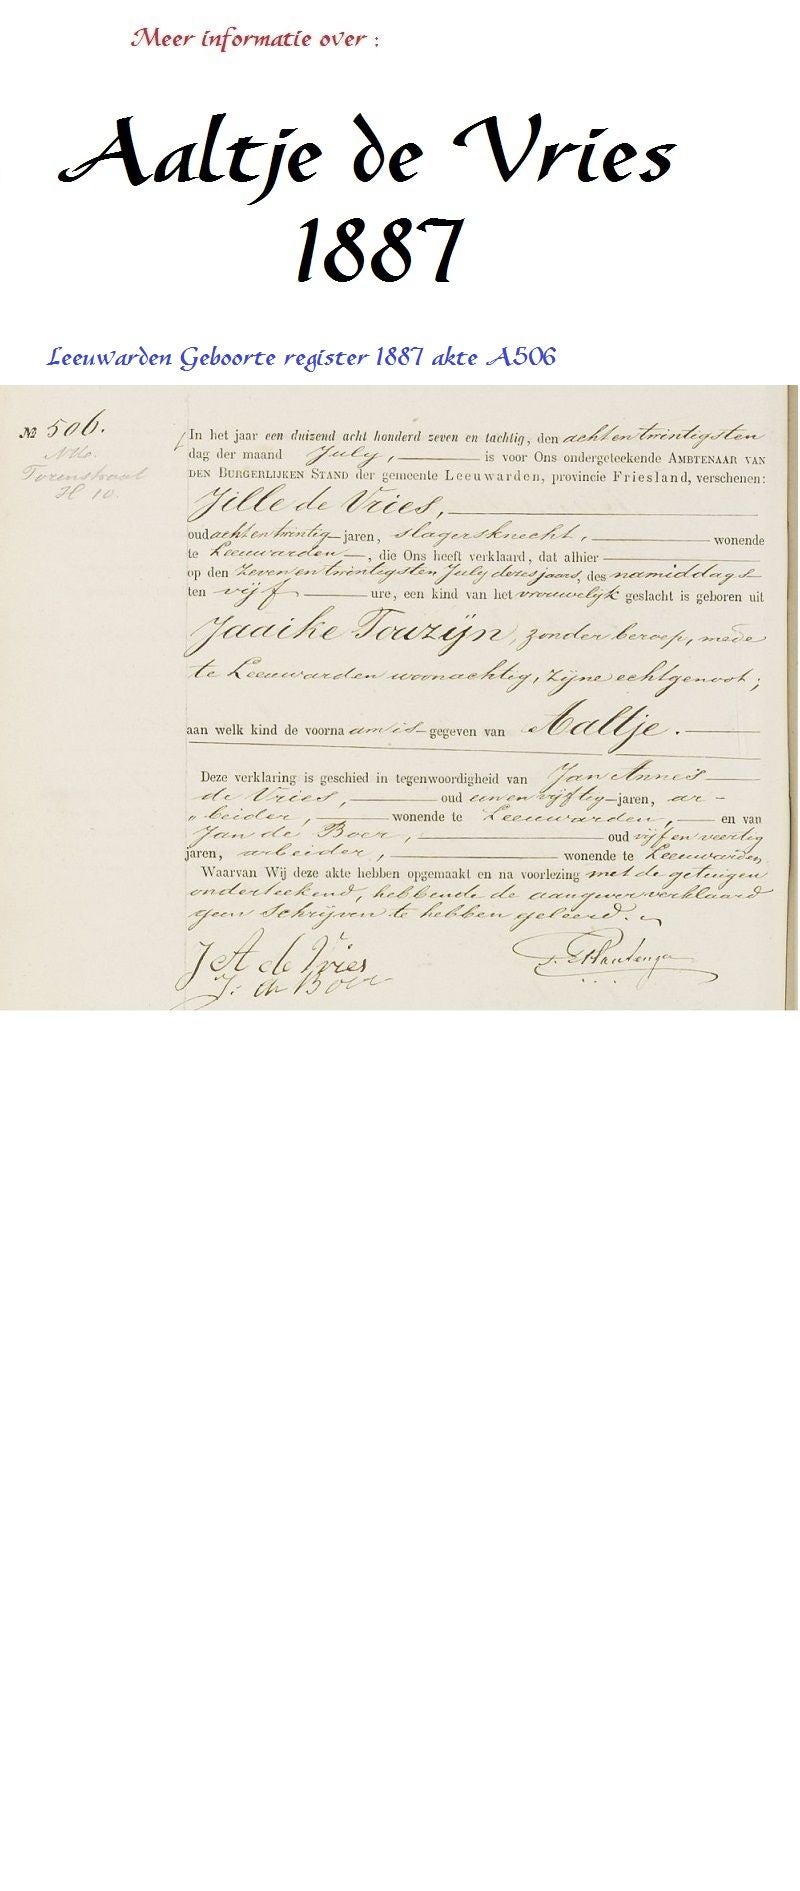 Meer informatie over :
Aaltje de Vries
1887
Leeuwarden Geboorte register 1887 akte A506
№ 506.
Torenstraat
H 10.
In het jaar een duizend acht honderd zeven en tachtig, den achtentwintigsten
dag der maand July, is voor Ons ondergeteekende AMBTENAAR VAN
DEN BURGERLIJKEN STAND der gemeente Leeuwarden, provincie Friesland, verschenen:
Jille de Vries,
oud achtentwintig jaren, slagersknecht, wonende
te Leeuwarden, die Ons heeft verklaard, dat alhier
op den zevenentwintigsten July dezes jaars, des namiddags
ten vijf ure, een kind van het vrouwelijk geslacht is geboren uit
Jaaike Touzijn, zonder beroep, mede
te Leeuwarden woonachtig, zijne echtgenoot;
aan welk kind de voornaam is gegeven van Aaltje.
Deze verklaring is geschied in tegenwoordigheid van Jan Annes
de Vries, oud eenenvijftig jaren, ar-
„beider, wonende te Leeuwarden, en van
Jan de Boer, oud vijfenveertig
jaren, arbeider, wonende te Leeuwarden.
Waarvan Wij deze akte hebben opgemaakt en na voorlezing met de getuigen
onderteekend, hebbende de aangever verklaard
geen schrijven te hebben geleerd.
J A de Vries
J. de Boer